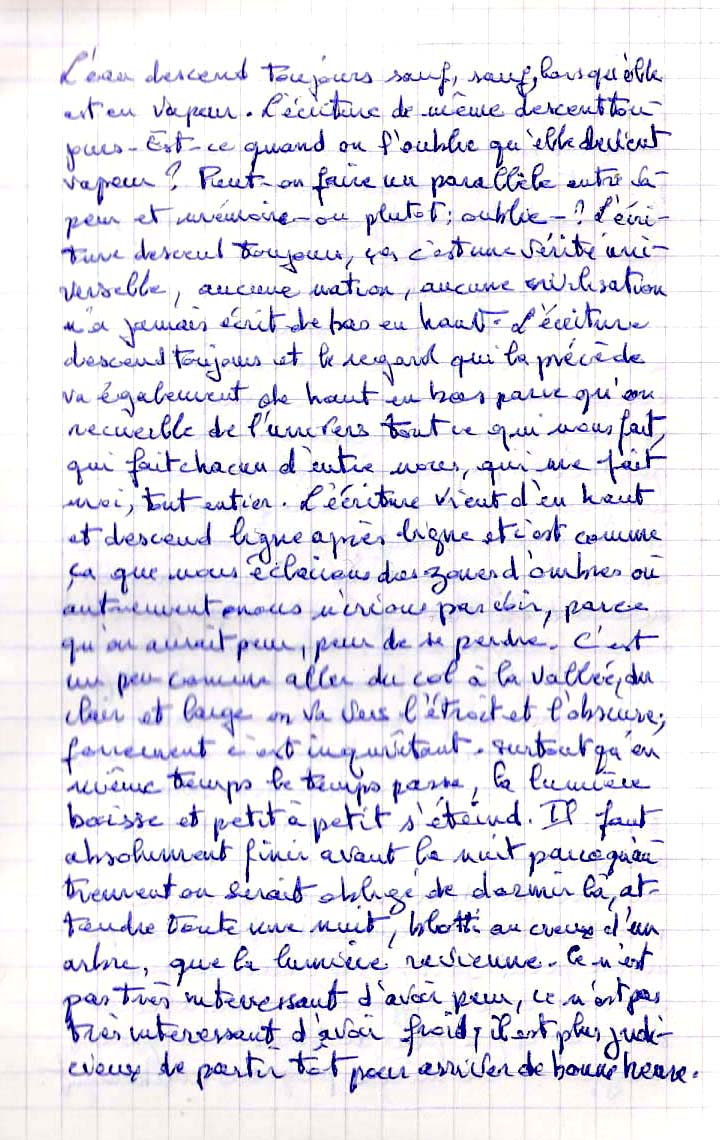 L'eau descend toujours sauf, sauf, lorsqu'elle
est en vapeur. L'écriture de même descent tou-
jours. Est-ce quand on l'oublie qu'elle devient
vapeur ? Peut-on faire un parallèle entre va-
peur et mémoire - ou plutôt : oublie - ? L'écri-
ture descend toujours, ça c'est une vérité uni-
verselle, aucune nation, aucune civilisation
n'a jamais écrit de bas en haut. L'écriture
descend toujours et le regard qui la précède
va également de haut en bas parce qu'on
recueille de l'univers tout ce qui nous fait,
qui fait chacun d'entre nous, qui me fait
moi, tout entier. L'écriture vient d'en haut
et descend ligne après ligne et c'est comme
ça que nous éclairons des zones d'ombres où
autrement nous n'irions pas voir, parce
qu'on aurait peur, peur de se perdre. C'est
un peu comme aller du col à la vallée, du
clair et large on va vers l'étroit et l'obscure ;
forcement c'est inquiétant. surtout qu'en
même temps le temps passe, la lumière
baisse et petit à petit s'éteind. Il faut
absolument finir avant la nuit parce qu'au
trement on serait obligé de dormir là, at-
tendre toute une nuit, blotti au creux d'un
arbre, que la lumière revienne. Ce n'est
pas très interessant d'avoir peur, ce n'est pas
très interessant d'avoir froid, il est plus judi-
cieux de partir tôt pour arriver de bonne heure.